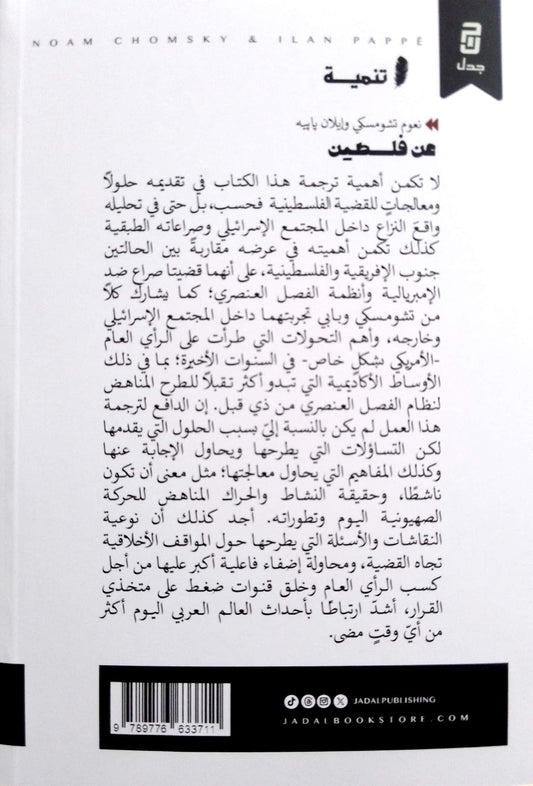 NOAM CHOMSKY & ILAN PAPPÉ
جدل
تنمية
نعوم تشومسكي وإيلان پاپيه
عن فلسطين
لا تكمن أهمية ترجمة هذا الكتاب في تقديمه حلولًا
ومعالجاتٍ للقضية الفلسطينية فحسب، بل حتى في تحليله
واقعَ النزاع داخل المجتمع الإسرائيلي وصراعاته الطبقية
كذلك تكمن أهميته في عرضه مقاربةً بين الحالتين
جنوب الإفريقية والفلسطينية، على أنهما قضيتا صراع ضد
الإمبريالية وأنظمة الفصل العنصري؛ كما يشارك كلًا
من تشومسكي وبابي تجربتهما داخل المجتمع الإسرائيلي
وخارجه، وأهم التحولات التي طرأت على الرأي العام
-الأمريكي بشكلٍ خاص- في السنوات الأخيرة؛ بما في ذلك
الأوساط الأكاديمية التي تبدو أكثر تقبلًا للطرح المناهض
لنظام الفصل العنصري من ذي قبل. إن الدافع لترجمة
هذا العمل لم يكن بالنسبة إليّ بسبب الحلول التي يقدمها
لكن التساؤلات التي يطرحها ويحاول الإجابة عنها
وكذلك المفاهيم التي يحاول معالجتها؛ مثل معنى أن تكون
ناشطًا، وحقيقة النشاط والحراك المناهض للحركة
الصهيونية اليوم وتطوراته. أجد كذلك أن نوعية
النقاشات والأسئلة التي يطرحها حول المواقف الأخلاقية
تجاه القضية، ومحاولة إضفاء فاعلية أكبر عليها من أجل
كسب الرأي العام وخلق قنوات ضغط على متخذي
القرار، أشدّ ارتباطًا بأحداث العالم العربي اليوم أكثر
من أيّ وقتٍ مضى.
JADALPUBLISHING
JADALBOOKSTORE.COM
9 789776 633711